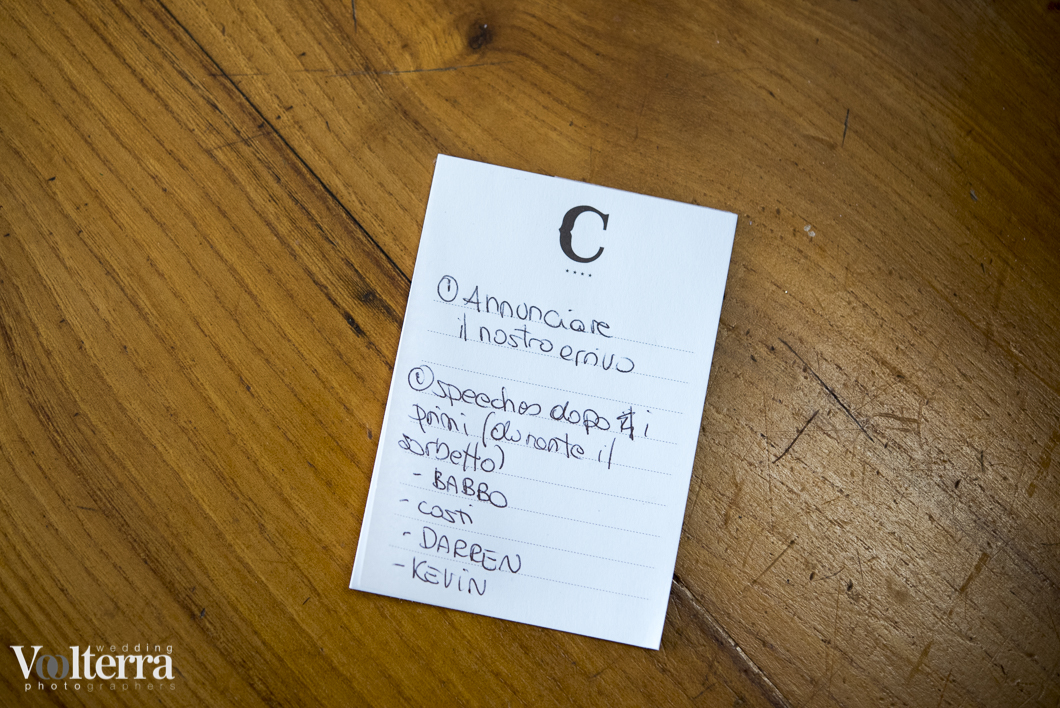 C
① Annunciare
il nostro arrivo
② speeches dopo i
primi (durante il
sorbetto)
- BABBO
- costi
- DARREN
- KEVIN
wedding
Voolterra
photographers